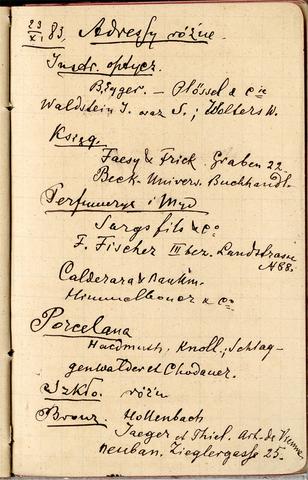 23/X 83. Adressy różne.
Instr. optycz.
B. Eger. — Plössel & Cie
Waldstein J. oraz S.; Wolters W.
Księg.
Faesy & Frick. Graben 22.
Beck. Univers. Buchhandl.
Perfumerye i Myd
Sargs fils & Co
F. Fischer III bez. Landstrasse
N 88.
Calderara & Bankm.
Himmelbauer & Co
Porcelana
Hardmuth, Knoll, Schlag-
genwalder et Chodauer.
Szkło. różn
Bronz. Hollenbach
Jaeger et Thiel. Art. de Vienne
Neuban. Zieglergasse 25.